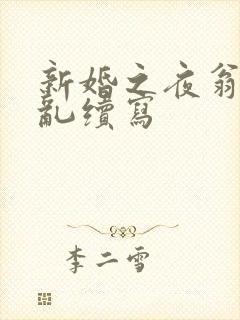 新婚之夜翁
亂續寫
李二雪